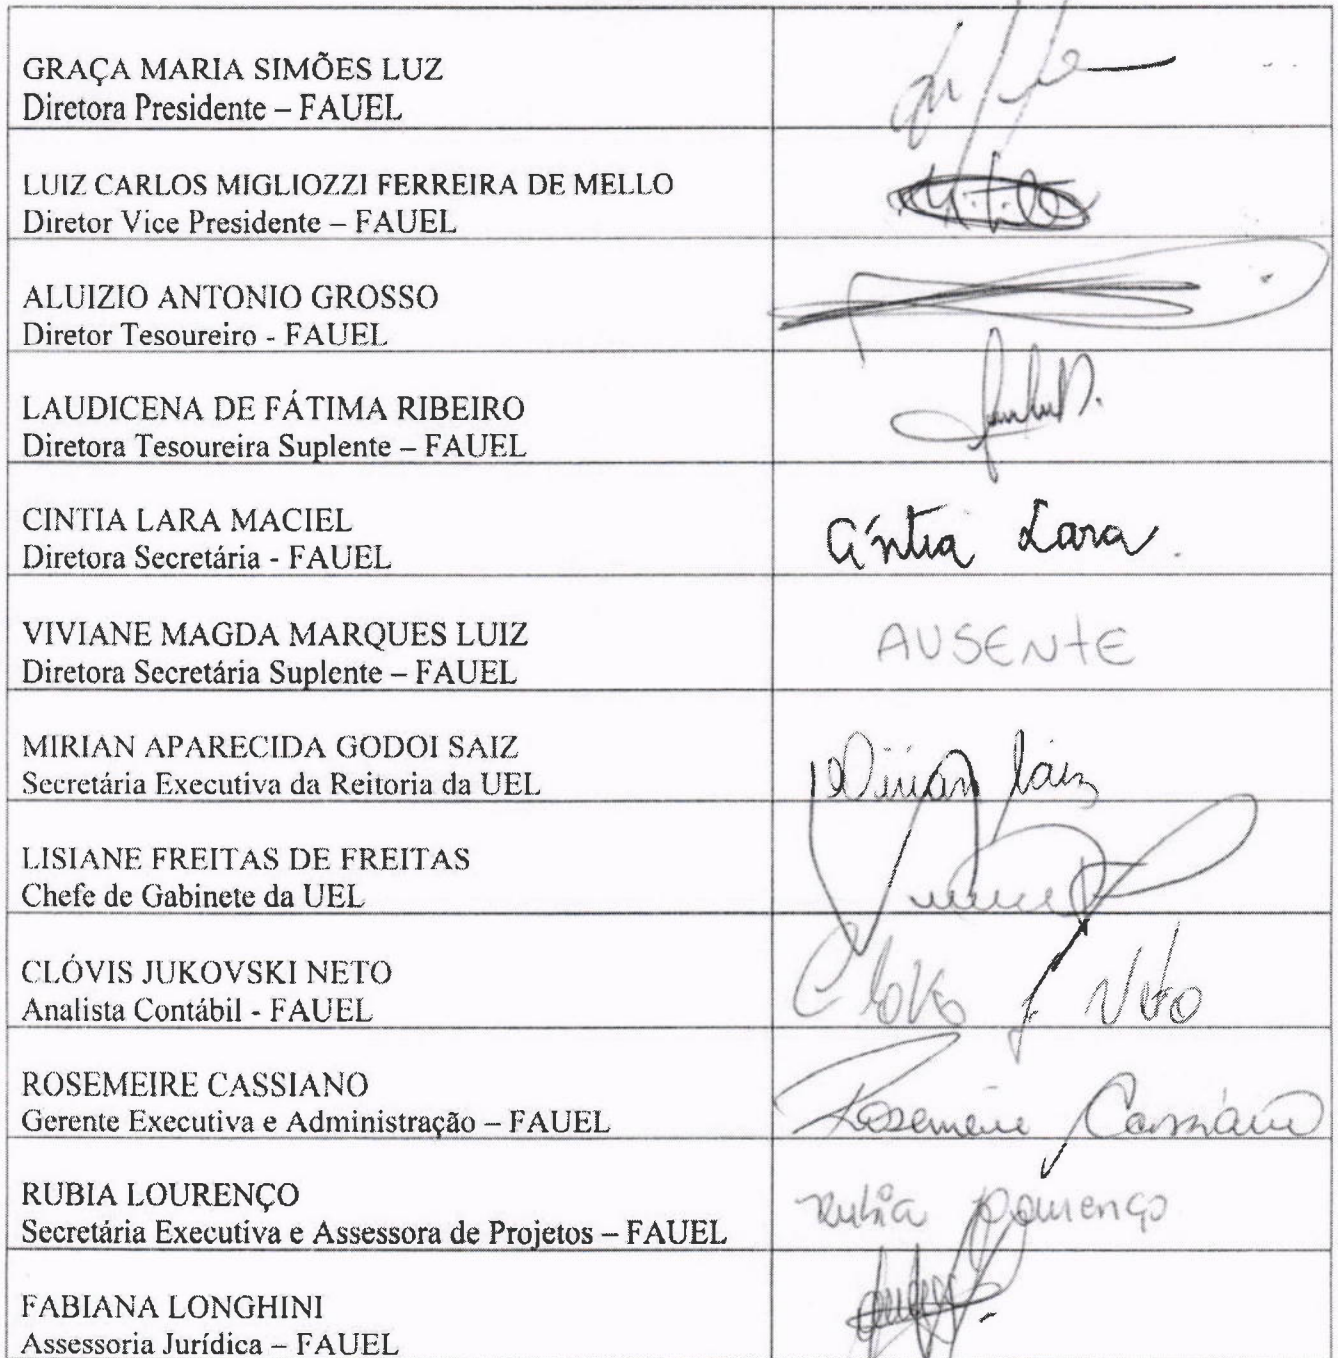 GRAÇA MARIA SIMÕES LUZ
Diretora Presidente – FAUEL
LUIZ CARLOS MIGLIOZZI FERREIRA DE MELLO
Diretor Vice Presidente – FAUEL
ALUIZIO ANTONIO GROSSO
Diretor Tesoureiro - FAUEL
LAUDICENA DE FÁTIMA RIBEIRO
Diretora Tesoureira Suplente – FAUEL
CINTIA LARA MACIEL
Diretora Secretária - FAUEL
Cíntia Lara
VIVIANE MAGDA MARQUES LUIZ
Diretora Secretária Suplente – FAUEL
AUSENTE
MIRIAN APARECIDA GODOI SAIZ
Secretária Executiva da Reitoria da UEL
Mirian Saiz
LISIANE FREITAS DE FREITAS
Chefe de Gabinete da UEL
CLÓVIS JUKOVSKI NETO
Analista Contábil - FAUEL
Clovis J. Neto
ROSEMEIRE CASSIANO
Gerente Executiva e Administração – FAUEL
Rosemeire Cassiano
RUBIA LOURENÇO
Secretária Executiva e Assessora de Projetos – FAUEL
Rubia Lourenço
FABIANA LONGHINI
Assessoria Jurídica – FAUEL